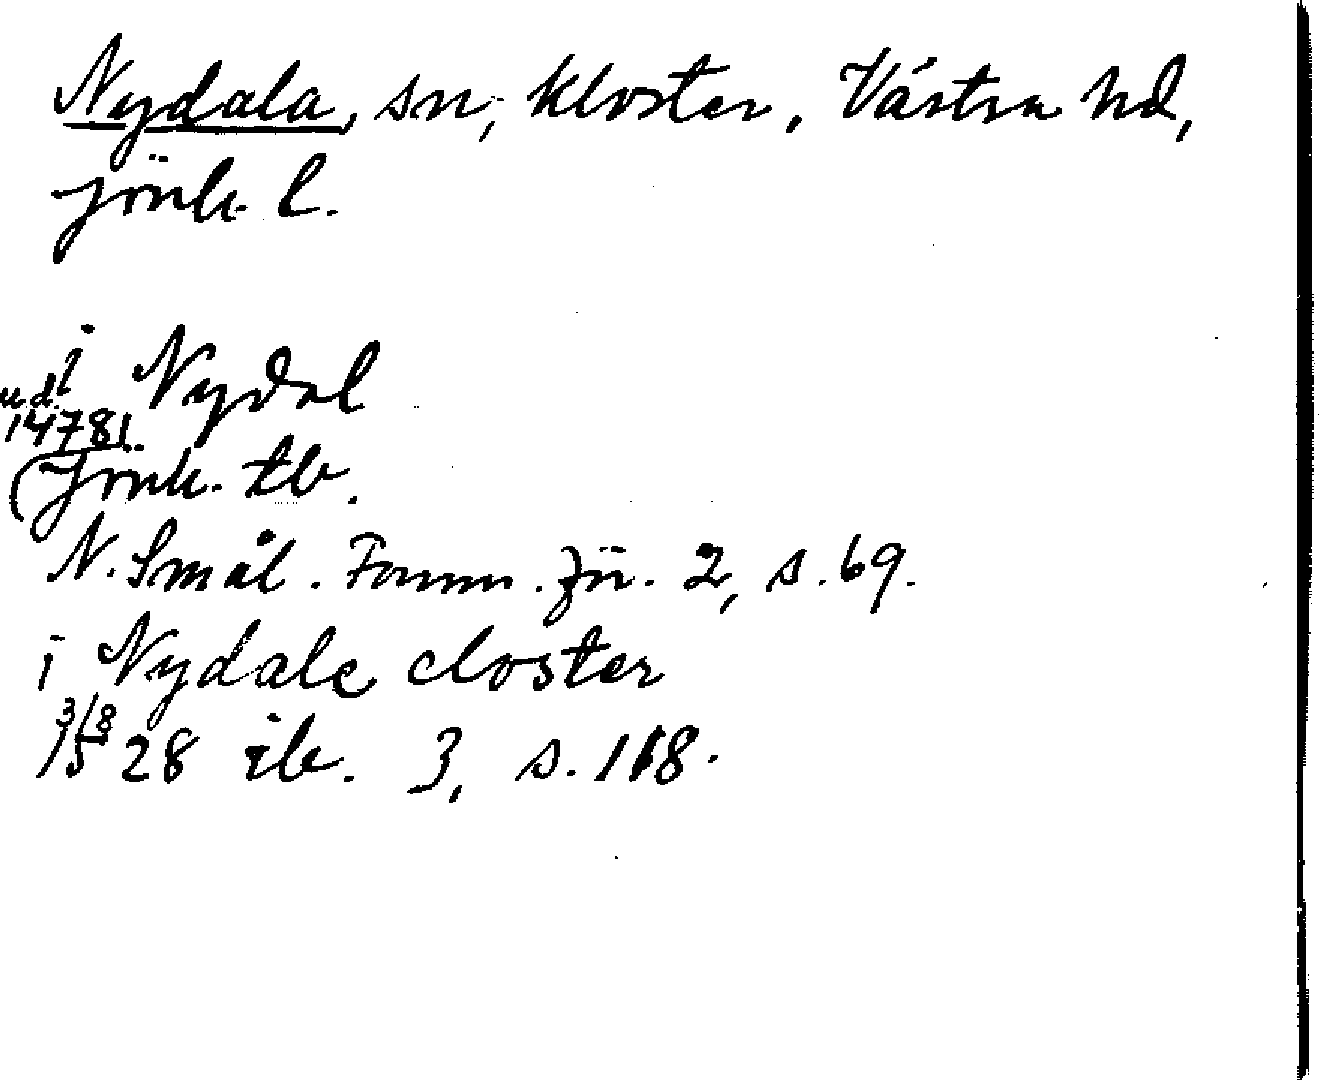 Nydala, sn, kloster, Västra hd,
Jönk. l.
i Nydal
u.d.
1478
(Jönk. tb.
N. Smål. Fornm. för. 2, s. 69.
i Nydale closter
3/8
1528 ib. 3, s. 118.